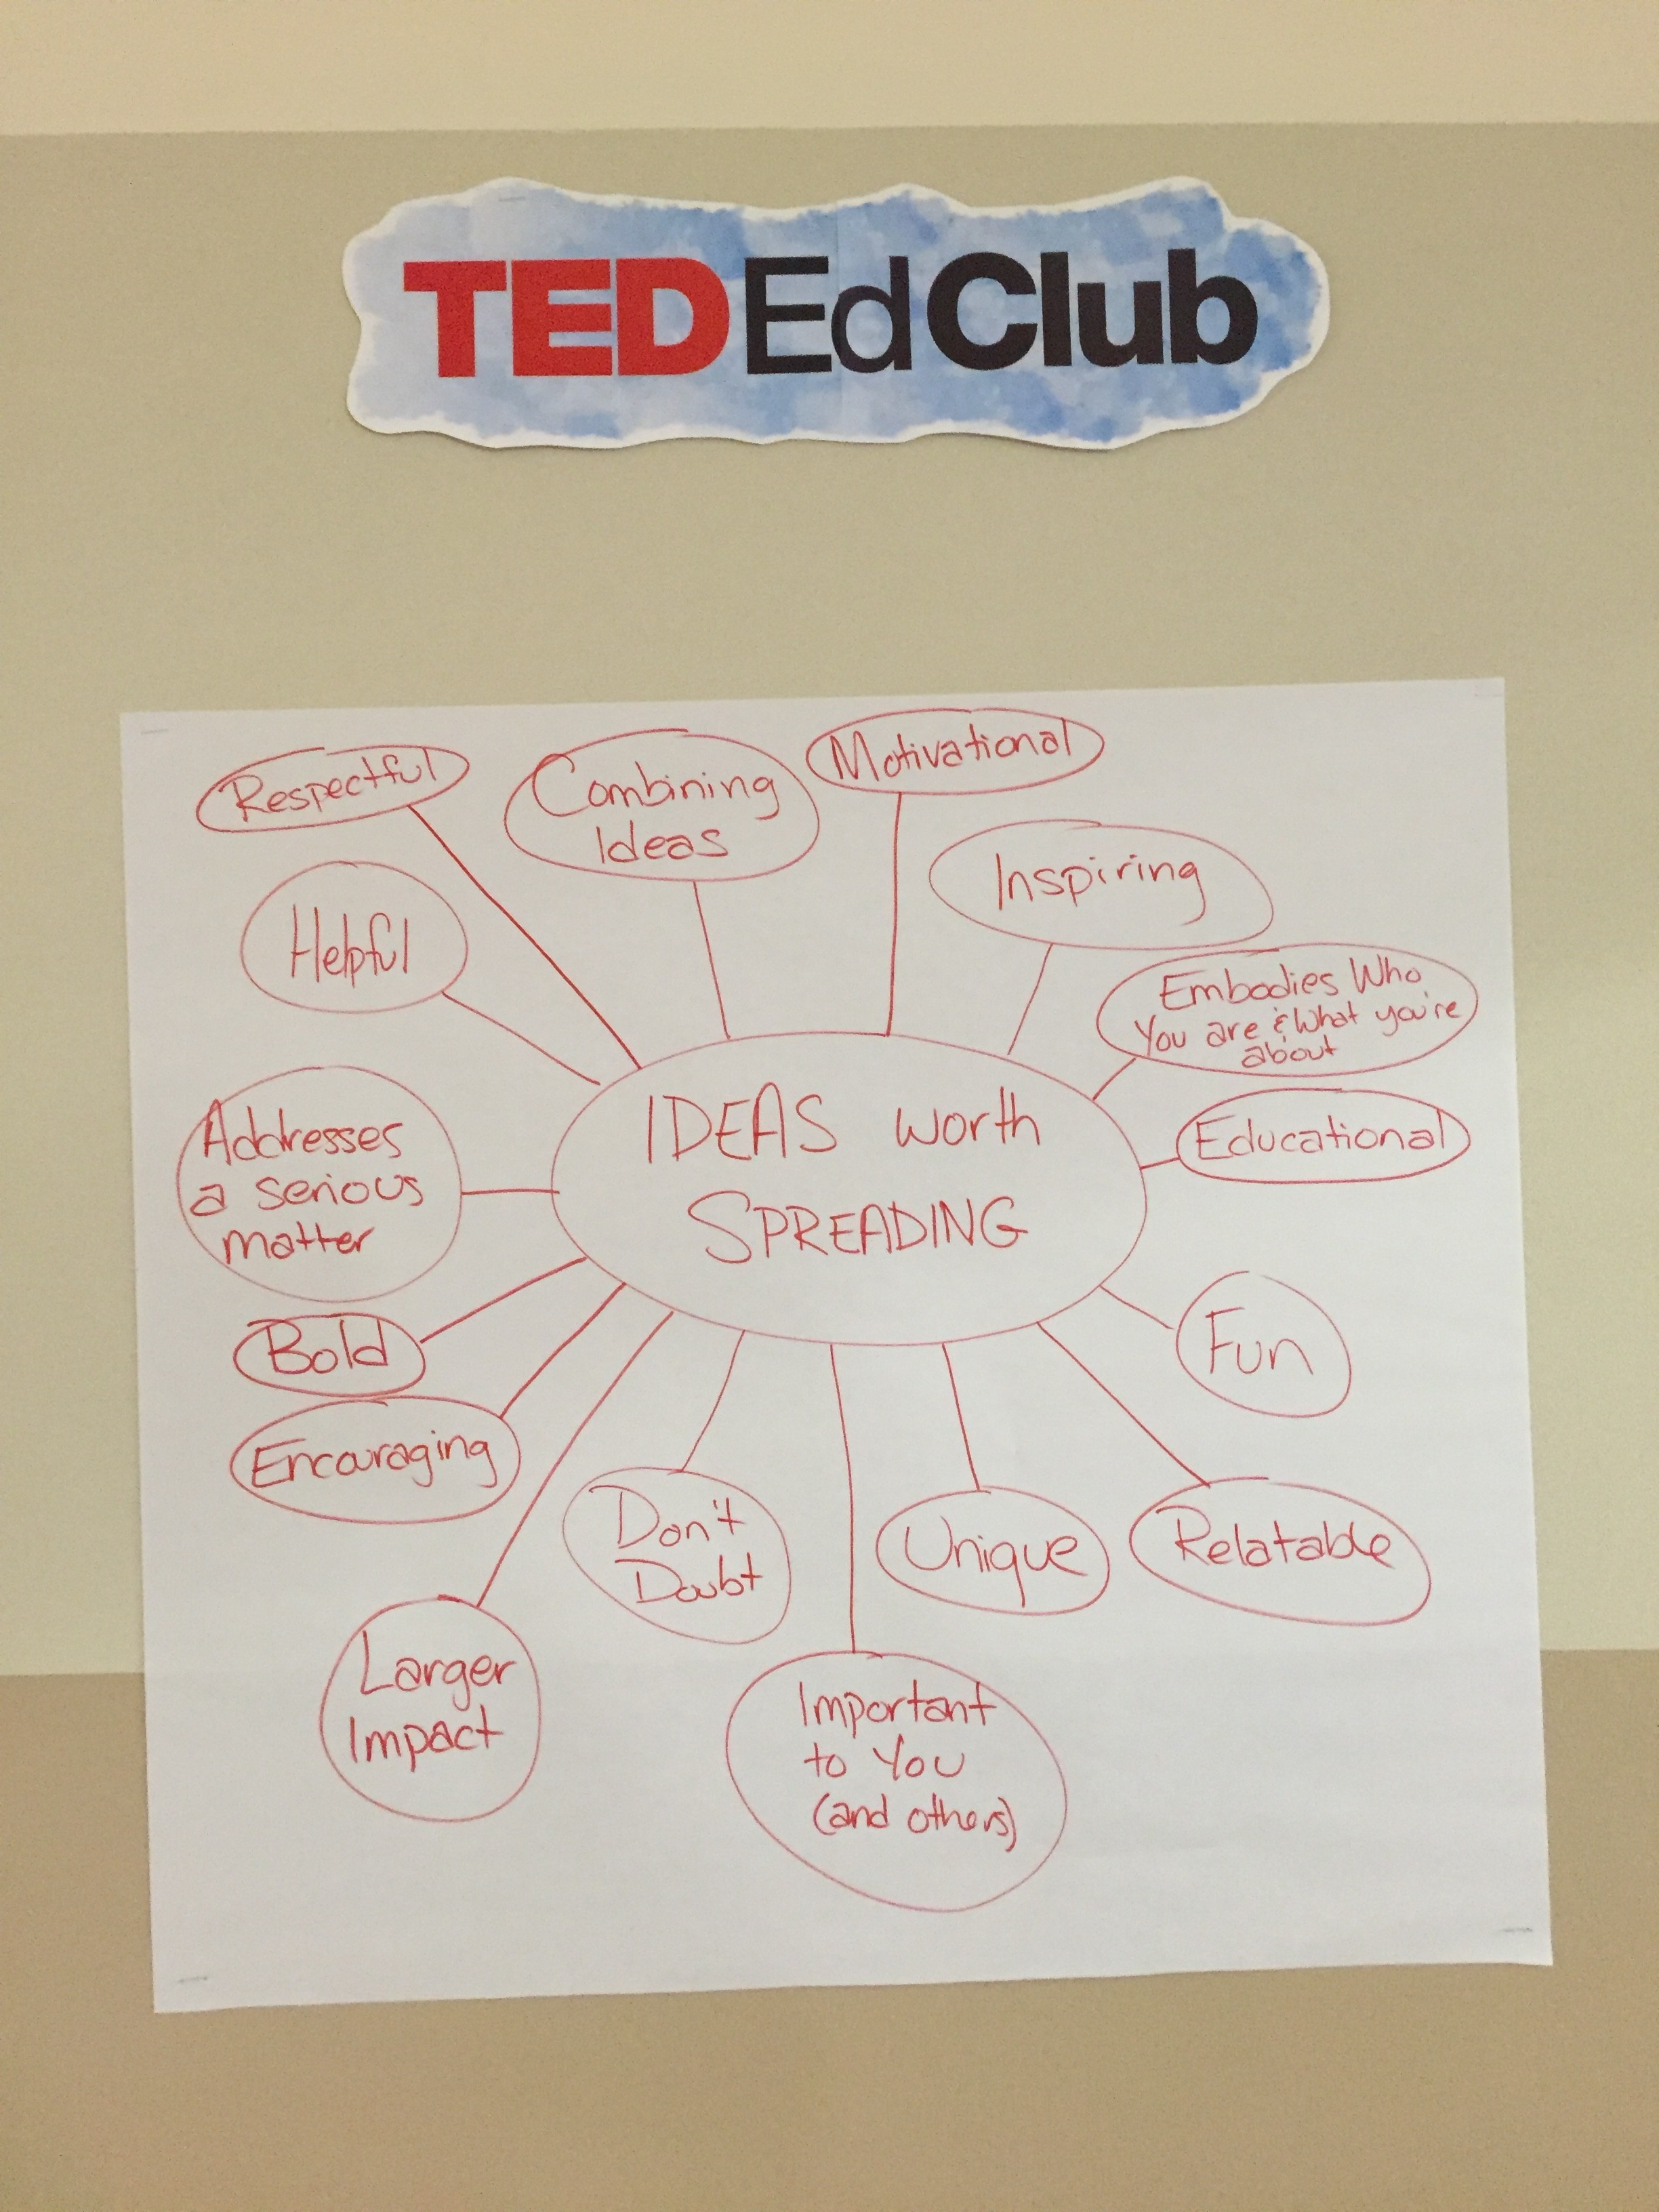 TEDEdClub
Respectful
Combining
Ideas
Motivational
Inspiring
Helpful
Embodies Who
You are & What you're
about
Educational
IDEAS worth
SPREADING
Addresses
a serious
matter
Bold
Fun
Encouraging
Don't
Doubt
Unique
Relatable
Larger
Impact
Important
to You
(and others)